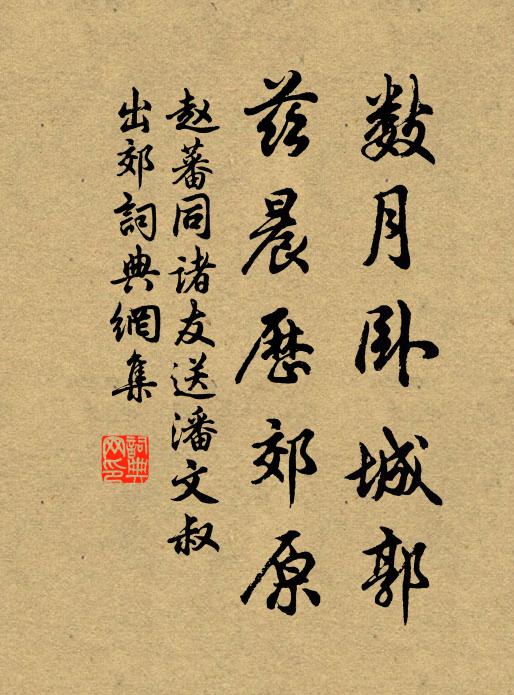 数月卧城郭
兹晨歷郊原
赵蕃同诸友送潘文叔
出郊詞典網集
詞典网印